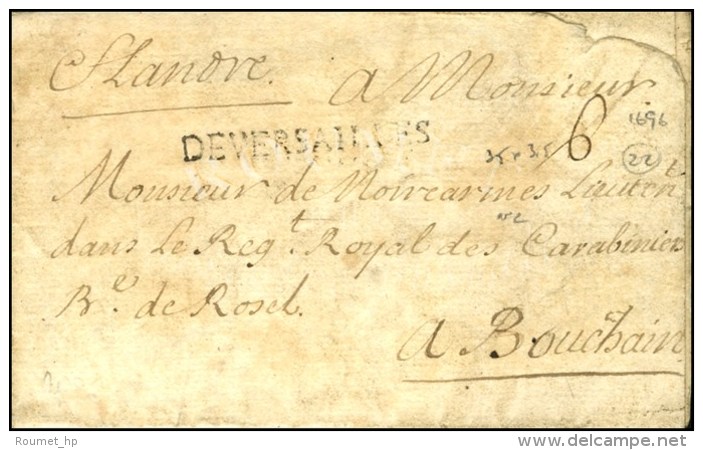 flandre.
a Monsieur
DEVERSAILLES
6
1696
22
Monsieur de Noircarmes Lieutent
dans Le Regt. Royal des Carabiniers
Be. de Rosel.
a Bouchain
Roumet_hp
©www.delcampe.net